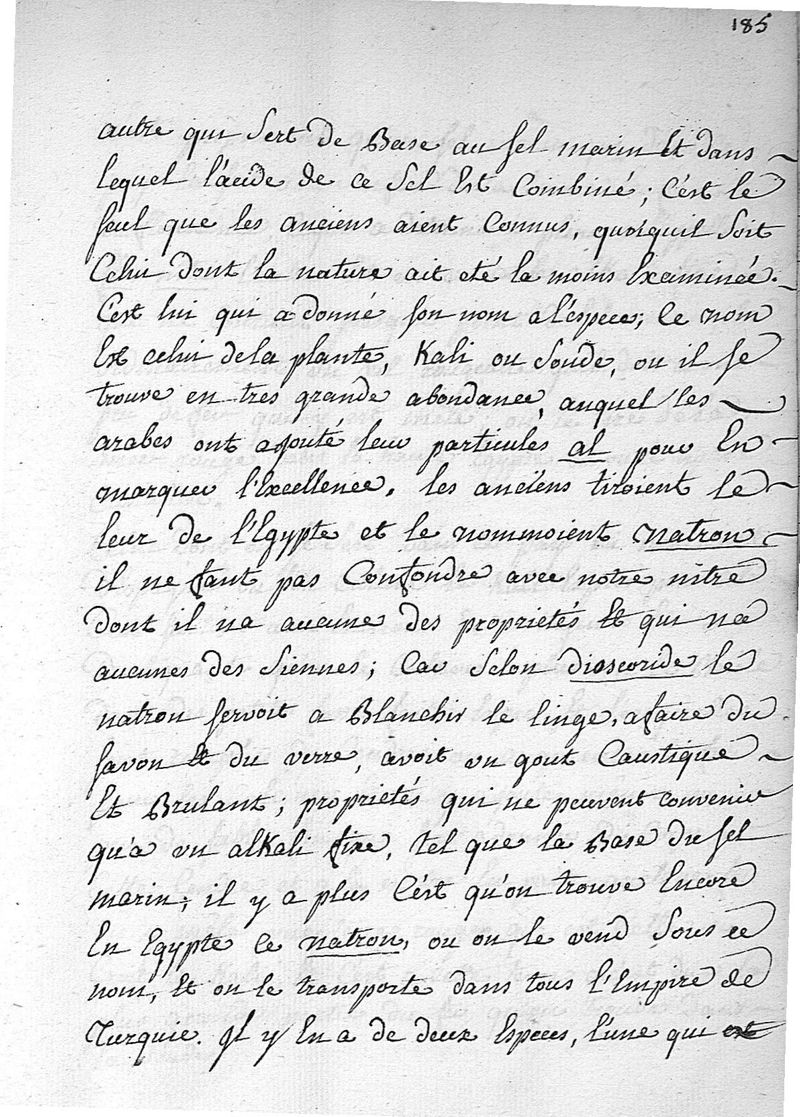 185
autre qui sert de Base au sel marin et dans
lequel l'acide de ce Sel Est Combiné; C'est le
seul que les anciens aient Connus, quoiquil Soit
Celui dont la nature ait eté la moins Examinée.
C'est lui qui a donné son nom a l'éspece; ce nom
Est celui de la plante, Kali ou Soude, ou il se
trouve en tres grande abondance, auquel les
arabes ont ajouté leur particules al pour En
marquer l'Excellence. les anciens tiroient le
leur de l'Egypte et le nommoient natron
il ne faut pas Confondre avec notre nitre
dont il na aucune des proprietés Et qui na
aucunes des Siennes; Car Selon dioscoride le
natron servoit a Blanchir le linge, a faire du
savon Et du verre, avoit un gout Caustique
Et Brulant; proprietés qui ne peuvent convenir
qu'a un alKali fixe, tel que la Base du sel
marin; il y a plus C'est qu'on trouve Encore
En Egypte ce natron, ou on le vend Sous ce
nom, Et on le transporte dans tous l'Empire de
Turquie. Il y En a de deux Especes, l'une qui